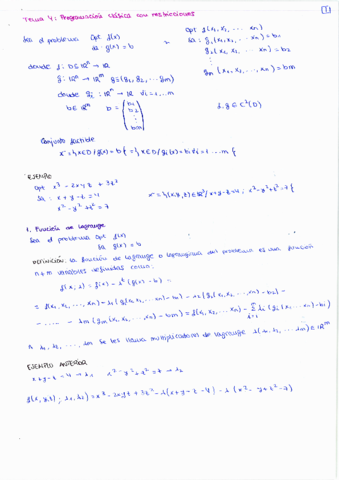 Tema 4: Programación clásica con restricciones
1
Sea el problema opt f(x)
sa: g(x) = b
opt f(x₁, x₂, ... xn)
sa: g₁(x₁, x₂, ... xn) = b₁
g₂(x₁, x₂, ... xn) = b₂
gm(x₁, x₂, ..., xn) = bm
donde f: D⊆ℝⁿ → ℝ
g: ℝⁿ → ℝᵐ g=(g₁, g₂, ... gm)
donde gi: ℝⁿ → ℝ ∀i=1,...m
b∈ℝᵐ b = (b₁ b₂ ⋮ bm)
f, g ∈ C²(D)
Conjunto factible
x = {x∈D / g(x) = b} = {x∈D / gi(x) = bi ∀i = 1 ... m}
EJEMPLO
opt x³ - 2xyz + 3z²
sa: x + y - z = 4
x² - y² + z² = 7
x = {(x,y,z)∈ℝ³ / x+y-z=4, x²-y²+z²=7}
1. Función de Lagrange
Sea el problema opt f(x)
sa g(x) = b
Definición: la función de Lagrange o lagrangiana del problema es una función
n+m variables definidas como:
L(x, λ) = f(x) - λᵗ (g(x) - b) =
= f(x₁, x₂, ... xn) - λ₁ (g₁(x₁, x₂, ..., xn) - b₁) - λ₂ (g₂(x₁, x₂, ..., xn) - b₂) -
- ... - λm (gm(x₁, x₂, ..., xn) - bm) = f(x₁, x₂, ... xn) - Σ λi (gi(x₁, ... xn) - bi)
A λ₁, λ₂, ..., λm se les llama multiplicadores de Lagrange λ(λ₁, λ₂, ... λm) ∈ ℝᵐ
EJEMPLO ANTERIOR
x + y - z = 4 → λ₁ x² - y² + z² = 7 → λ₂
L(x, y, z; λ₁, λ₂) = x³ - 2xyz + 3z² - λ(x + y - z - 4) - λ (x² - y + z² - 7)